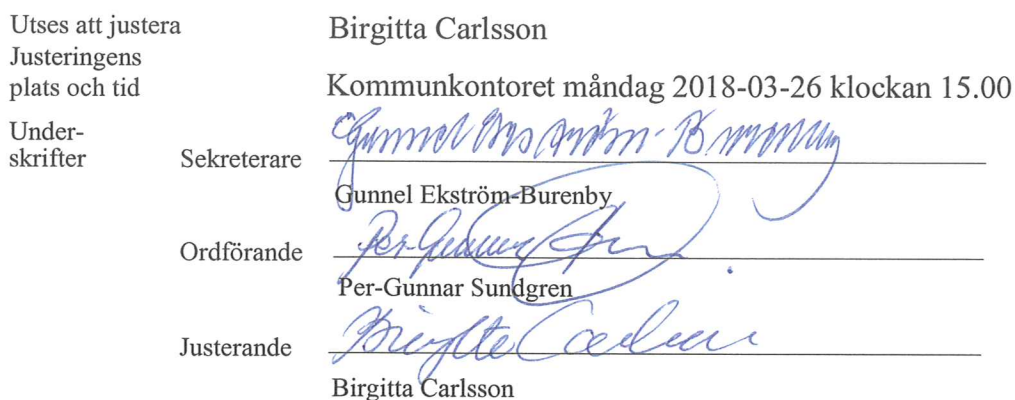 Utses att justera Birgitta Carlsson
Justeringens
plats och tid Kommunkontoret måndag 2018-03-26 klockan 15.00
Under-
skrifter Sekreterare Gunnel Ekström-Burenby
Gunnel Ekström-Burenby
Ordförande Per-Gunnar
Per-Gunnar Sundgren
Justerande Birgitta Carlsson
Birgitta Carlsson